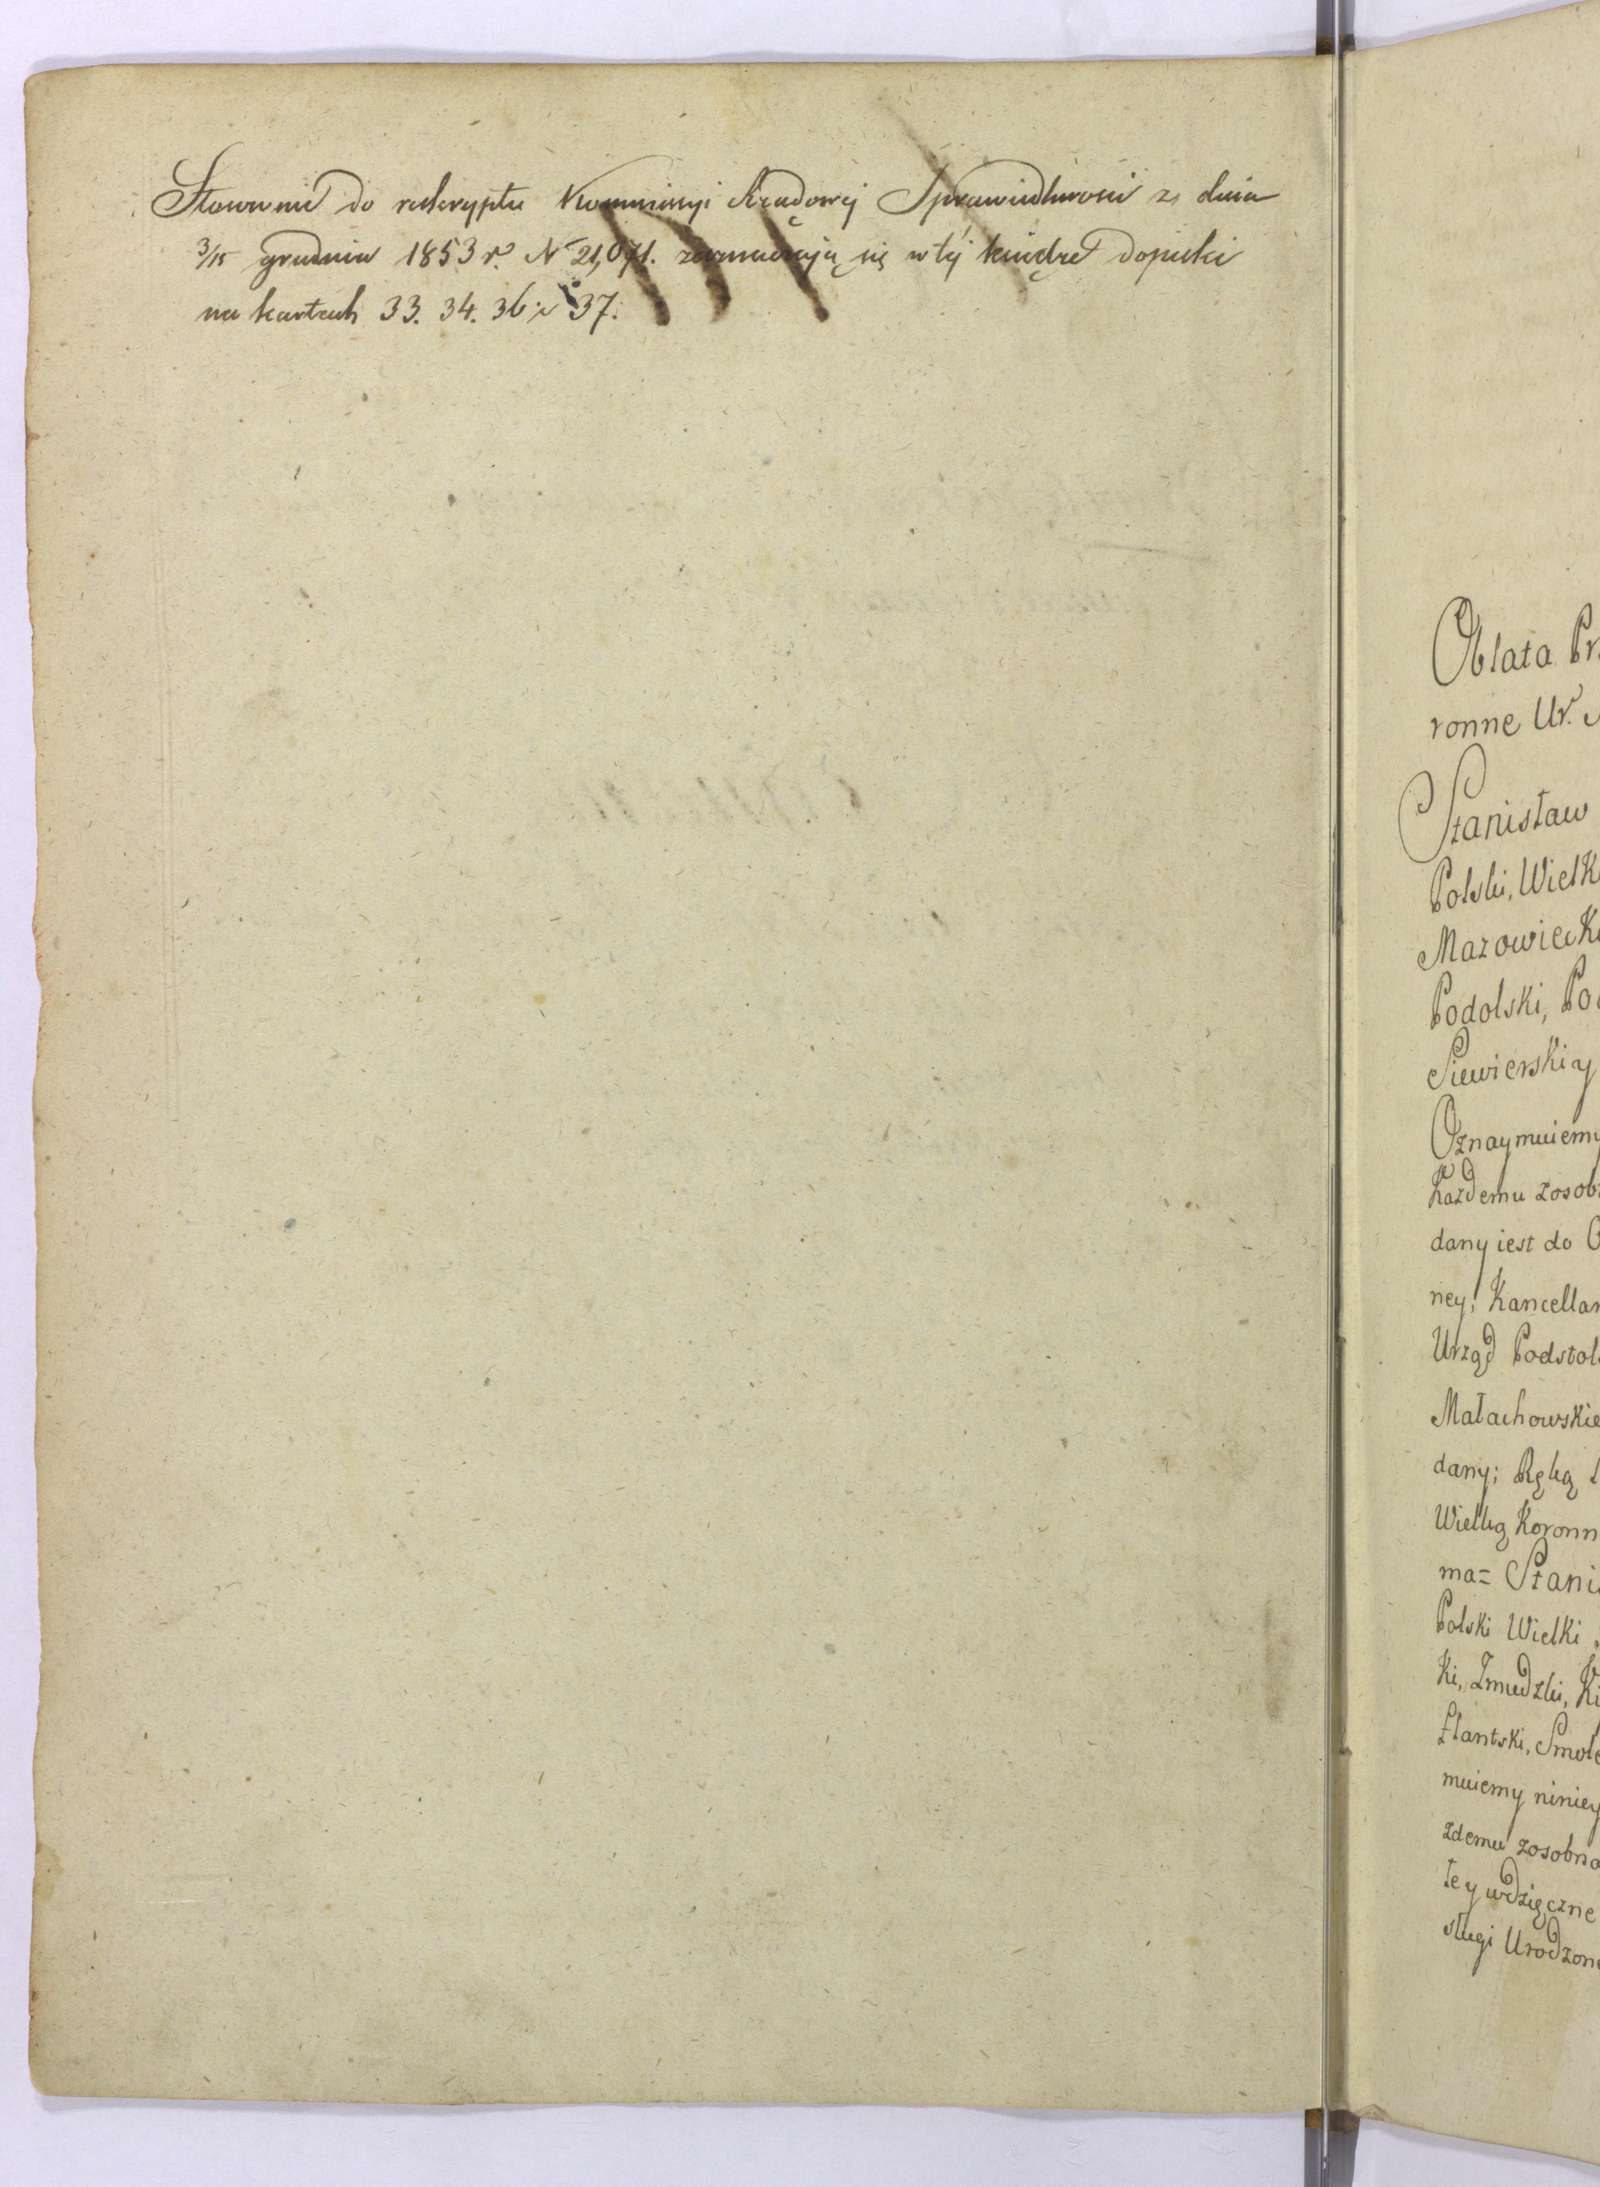 Stosownie do reskryptu Kommissyi Rządowej Sprawiedliwości z dnia
3/15 grudnia 1853 r. N 21,071. zaznaczają się w tej księdze dopiski
na kartach 33. 34. 36 i 37.
Oblata Pr
ronne Ur.
Stanisław
Polski, Wielk
Mazowieck
Podolski, Po
Siewierski y
Oznaymuiemy
Każdemu zosob
dany iest do
ney, Kancellar
Urząd Podstol
Małachowskie
dany; Ręką
Wielką Koronn
ma= Stani
Polski Wielki
ki, Zmudzki, Ki
flantski, Smole
muiemy niniey
zdemu zosobna
te y wdzięczne
sługi Urodzone